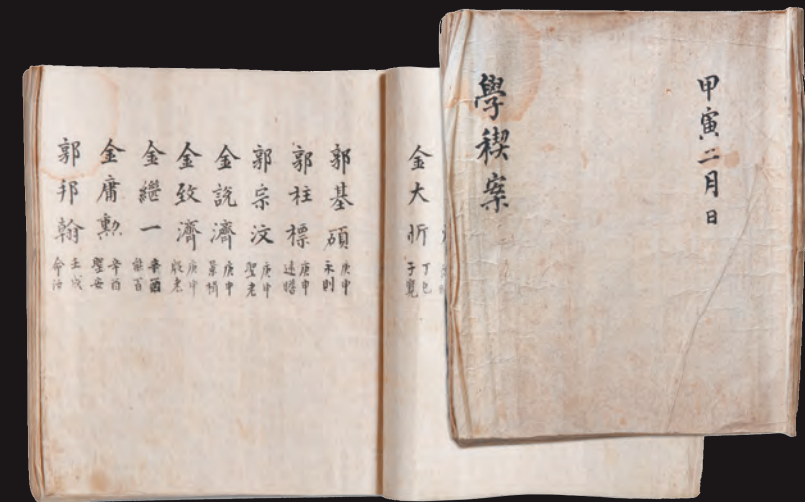 甲寅二月日
學稧案
金大忻
丁巳
郭基碩
庚申
永則
郭柱標
庚申
郭宗汶
庚申
聖老
金說濟
庚申
金致濟
庚申
金繼一
辛酉
金庸勲
辛酉
聖安
郭邦翰
壬戌